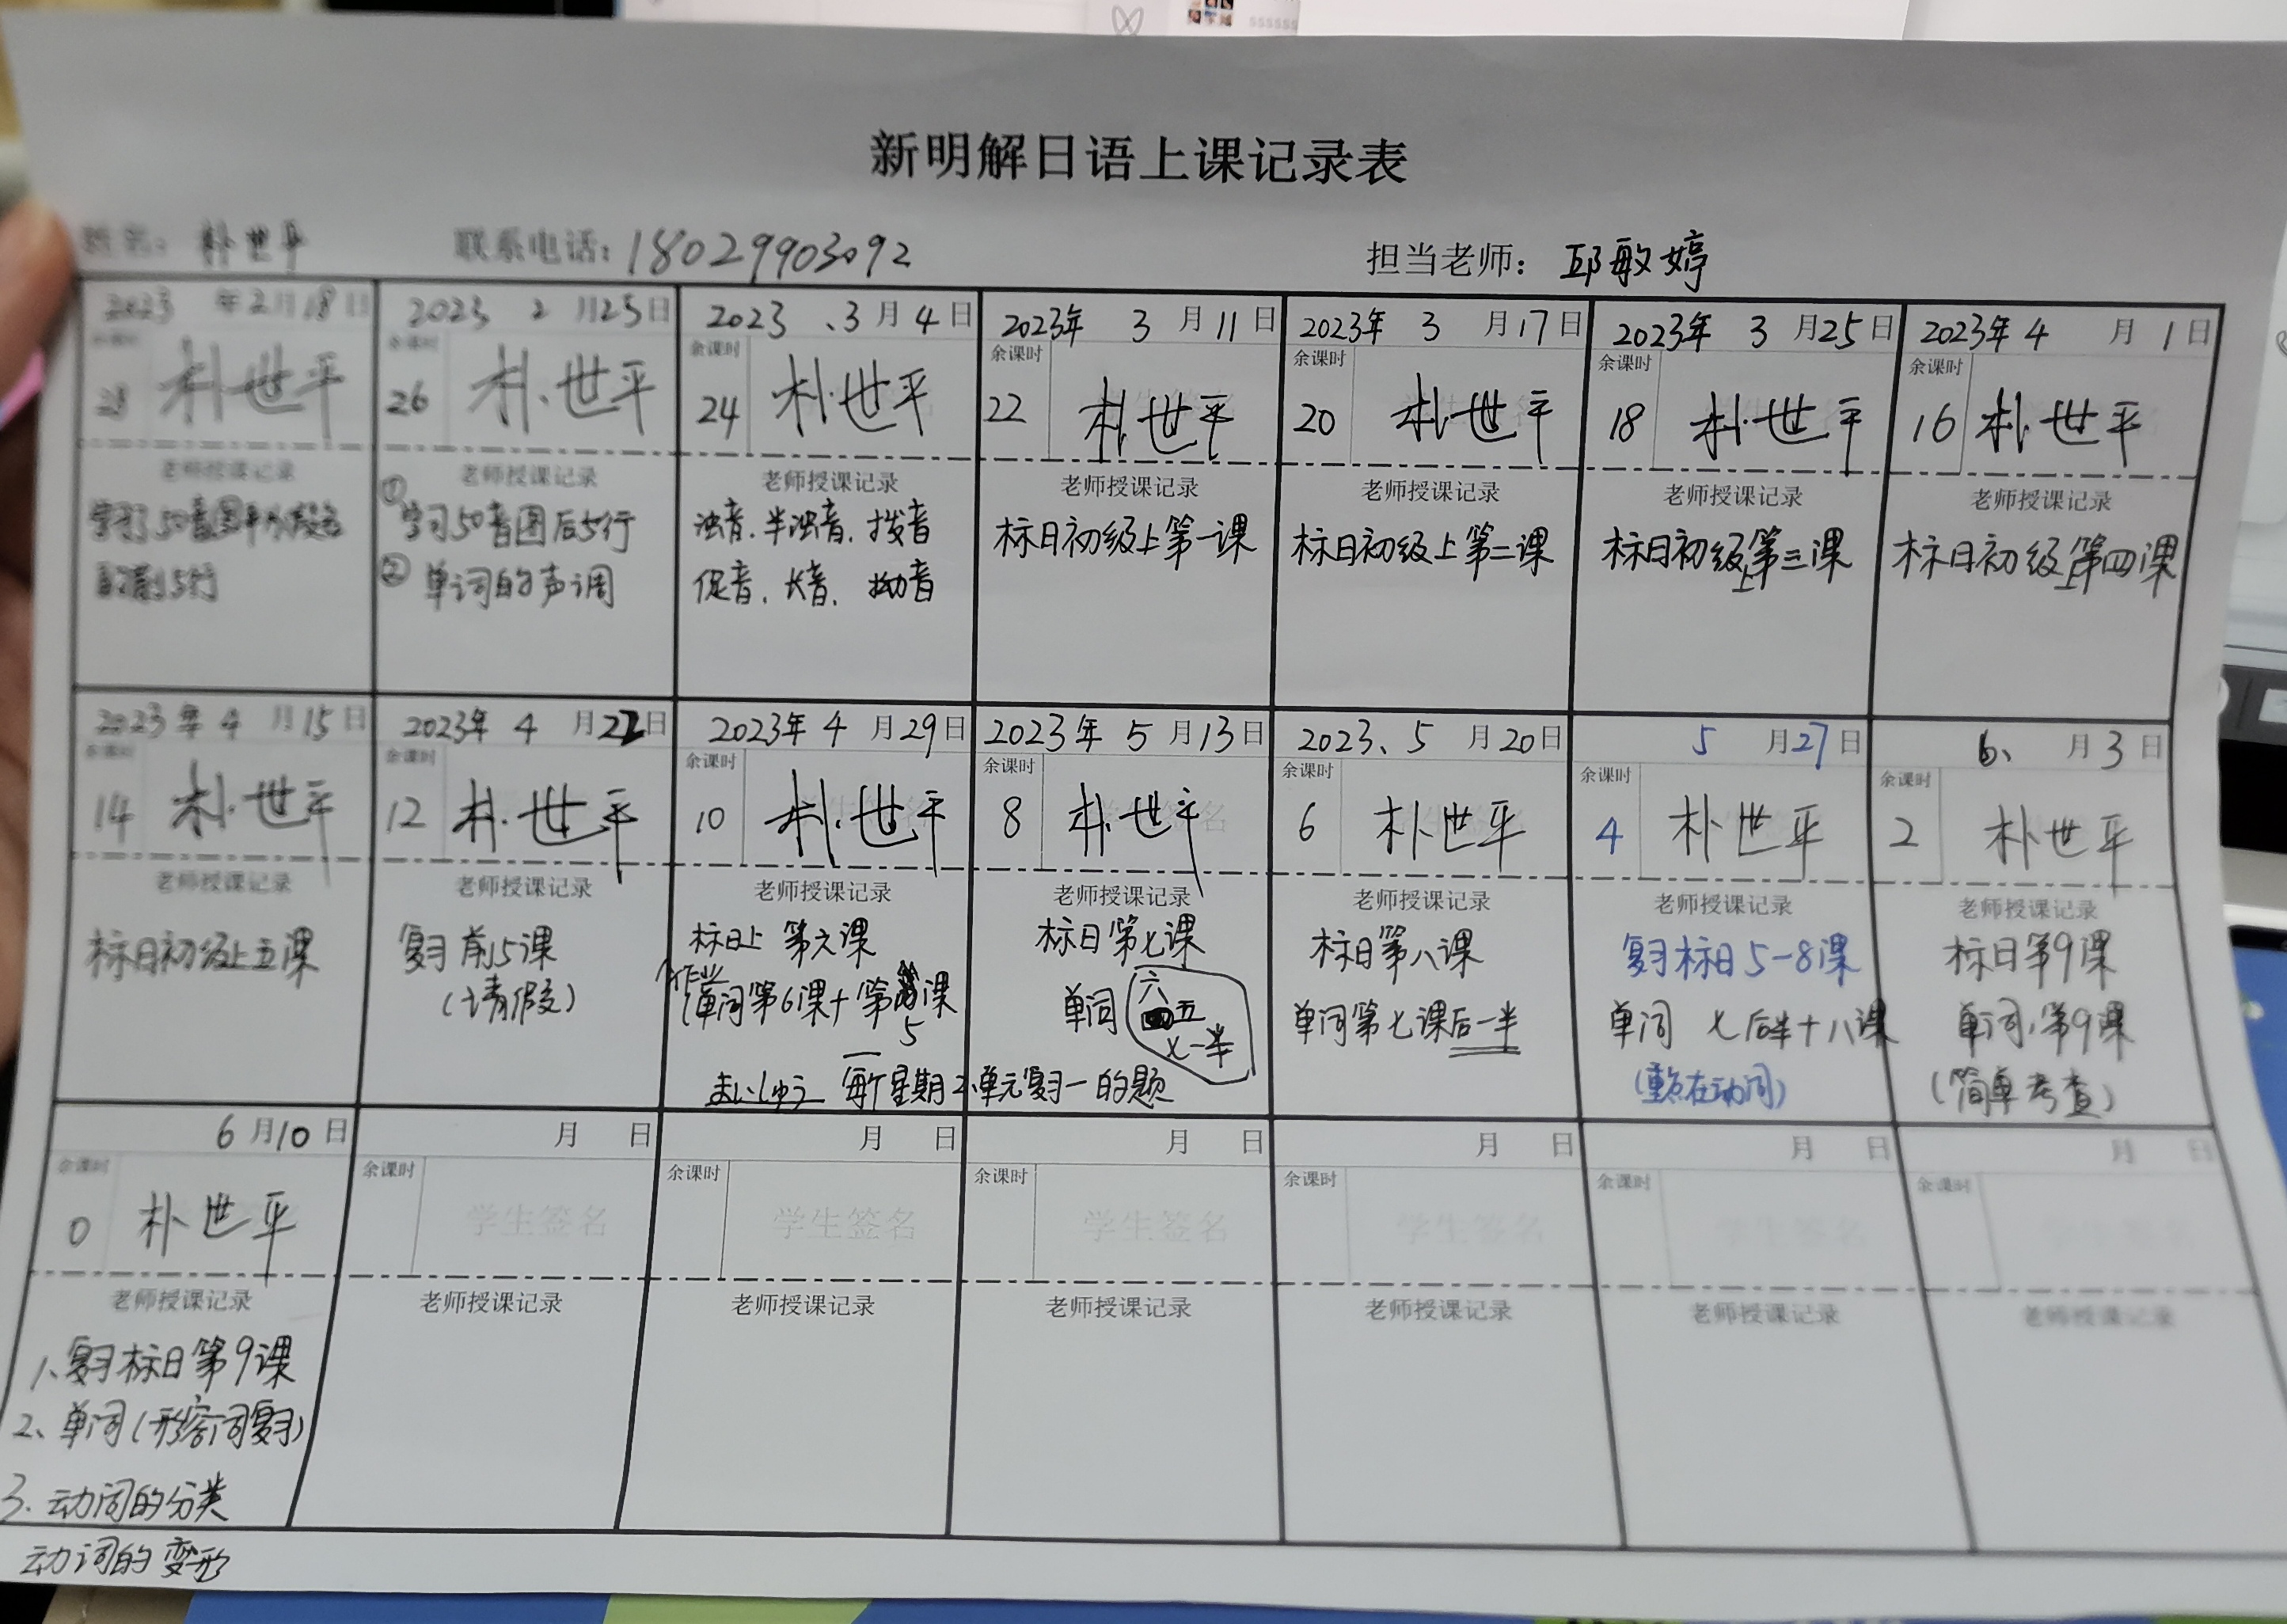 新明解日语上课记录表
姓名：朴世平 联系电话：18029903092 担当老师：邱敏婷
2023 年2月18日
余课时
28 朴世平
老师授课记录
学习了50音图平假名
前5行
2023 2 月25日
余课时
26 朴世平
老师授课记录
①学习50音图后5行
② 单词的声调
2023 、3月4日
余课时
24 朴世平
老师授课记录
浊音.半浊音.拨音
促音.长音.拗音
2023年 3 月11日
余课时
22 朴世平
老师授课记录
标日初级上第一课
2023年 3 月17日
余课时
20 朴世平
老师授课记录
标日初级上第二课
2023年 3 月25日
余课时
18 朴世平
老师授课记录
标日初级上第三课
2023年 4 月1日
余课时
16 朴世平
老师授课记录
标日初级上第四课
2023年 4 月15日
余课时
14 朴世平
老师授课记录
标日初级上五课
2023年 4 月22日
余课时
12 朴世平
老师授课记录
复习前5课
（请假）
2023年 4 月29日
余课时
10 朴世平
老师授课记录
标日上 第六课
作业
单词第6课+第5课
まいしゅう 每个星期 单元复习一的题
2023年 5 月13日
余课时
8 朴世平
老师授课记录
标日第七课
单词 六
五
七一半
2023、5 月20日
余课时
6 朴世平
老师授课记录
标日第八课
单词第七课后一半
5 月27日
余课时
4 朴世平
老师授课记录
复习标日5-8课
单词 七后半+八课
（重点在动词）
6、 月3日
余课时
2 朴世平
老师授课记录
标日第9课
单词,第9课
（简单考查）
6月10日
余课时
0 朴世平
老师授课记录
1、复习标日第9课
2、单词（形容词复习）
3.动词的分类
动词的变形
月 日
余课时
学生签名
老师授课记录
月 日
余课时
学生签名
老师授课记录
月 日
余课时
学生签名
老师授课记录
月 日
余课时
学生签名
老师授课记录
月 日
余课时
学生签名
老师授课记录
月 日
余课时
学生签名
老师授课记录